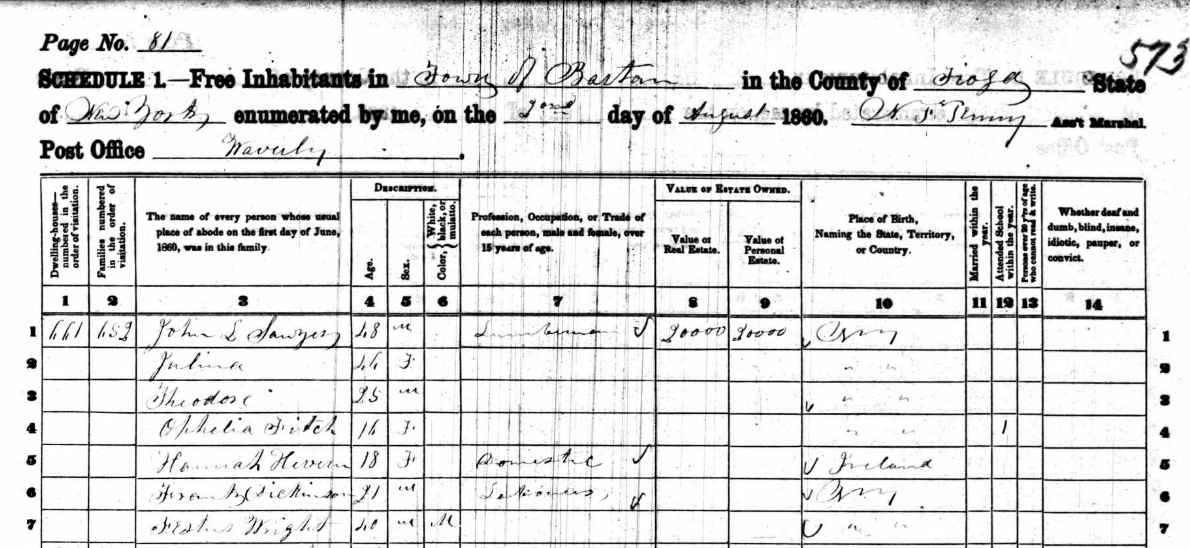 Page No. 81
573
SCHEDULE 1.—Free Inhabitants in Town of Barton in the County of Tioga State
of New York enumerated by me, on the 2nd day of August 1860. Ass't Marshal.
Post Office Waverly.
Dwelling-houses—numbered in the order of visitation.
Families numbered in the order of visitation.
The name of every person whose usual place of abode on the first day of June, 1860, was in this family.
DESCRIPTION.
Age.
Sex.
Color, { White, black, or mulatto.
Profession, Occupation, or Trade of each person, male and female, over 15 years of age.
VALUE OF ESTATE OWNED.
Value of Real Estate.
Value of Personal Estate.
Place of Birth, Naming the State, Territory, or Country.
Married within the year.
Attended School within the year.
Persons over 20 y'rs of age who cannot read & write.
Whether deaf and dumb, blind, insane, idiotic, pauper, or convict.
1 2 3 4 5 6 7 8 9 10 11 12 13 14
1 661 652 John L Sawyer 48 m Lumberman 20000 20000 1
2 Julina 46 F " " 2
3 Theodore 25 m " " 3
4 Ophelia Fitch 16 F " " 1 4
5 Hannah 18 F Domestic Ireland 5
6 Frank Dickinson 21 m 6
7 Festus Wright 40 m M " " 7